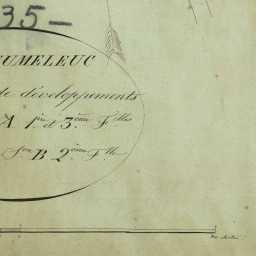 35 —
UMELEUC
de développements
A 1ère et 3ème Flles
Son B 2ème Flle